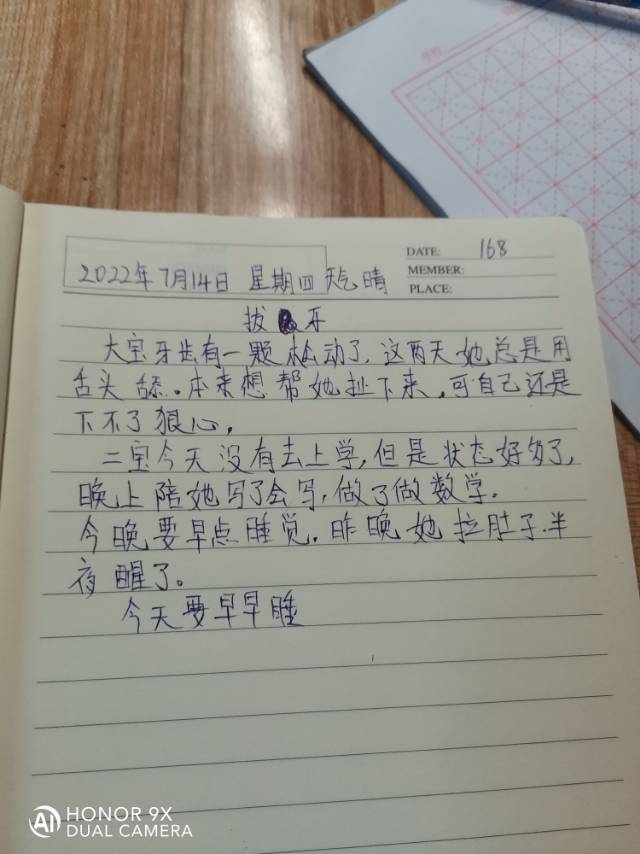 DATE: 168
MEMBER:
PLACE:
2022年7月14日 星期四 天气晴
拔牙
大宝牙齿有一颗松动了,这两天她总是用
舌头舔。本来想帮她扯下来,可自己还是
下不了狠心,
二宝今天没有去上学,但是状态好多了,
晚上陪她写了会写,做了做数学.
今晚要早点睡觉.昨晚她拉肚子.半
夜醒了。
今天要早早睡
HONOR 9X
DUAL CAMERA